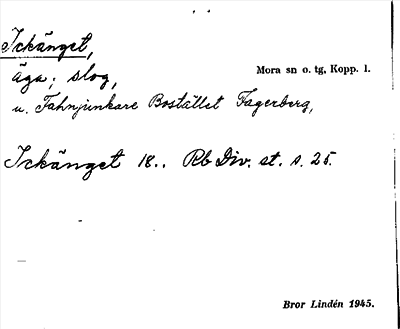 Ickänget,
äga; slog,
Mora sn o. tg, Kopp. l.
u. Fahnjunkare Bostället Fagerberg,
Ickänget 18.. Rb Div. st. s. 25.
Bror Lindén 1945.